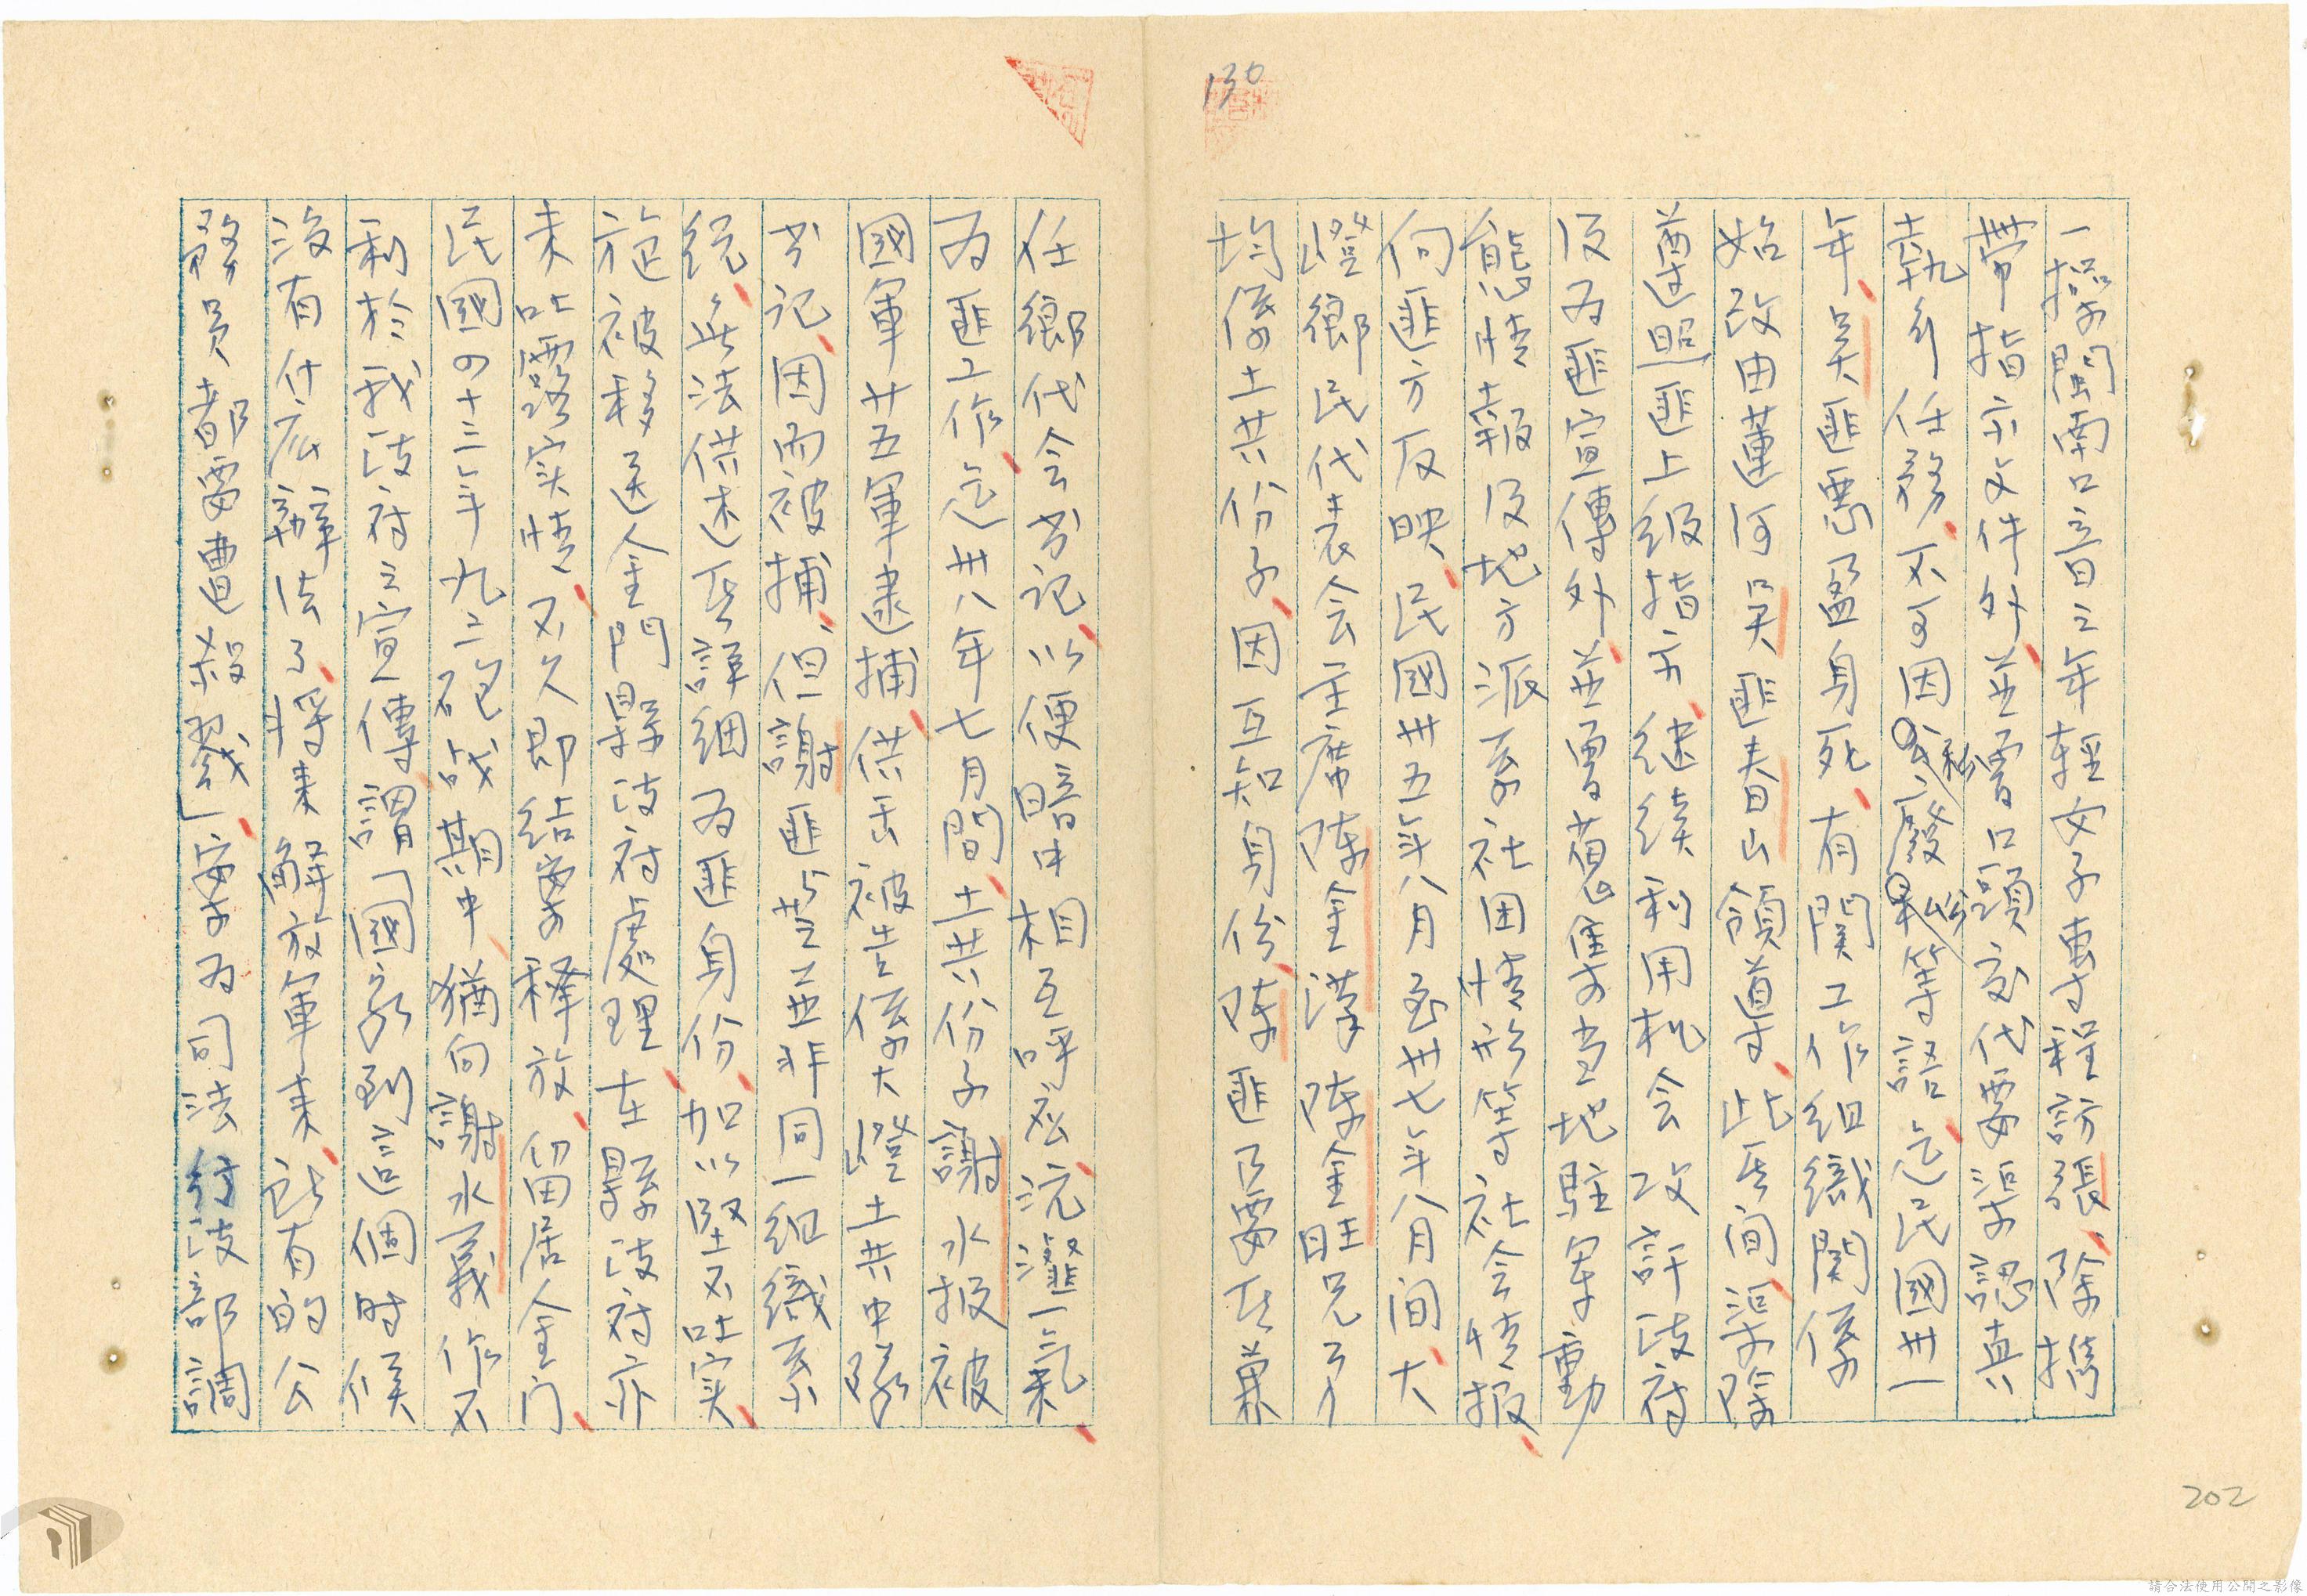 130
一操閩南口音之年輕女子轉程訪張、除携
帶指示文件外、並曾口頭交代要渠認真
執行任務、不可因
年、吳匪馬醫身死、有關工作組織關係
始改由蓮河吳匪夫山領導、此其間、渠除
遵照匪上級指示、继續利用机会攻訐政府
及為匪宣傳外、並曾蒐集当地駐军動
態情報及地方派系社团情形等社会情報、
向匪方反映、民國卅五年八月至卅七年八月间、大
嶝鄉民代表会主席陳金漢陳金旺兄弟
均係土共份子、因互知身份、陳匪乃要其兼
任鄉代会书记、以便暗中相互呼应、沆瀣一氣
为匪工作、迄卅八年七月間、土共份子謝水扳被
國軍廿五軍逮捕、供出被告係大嶝土共中隊
书记、因而被捕、但謝匪与其並非同一组織系
统、無法供述其詳細为匪身份、加以坚不吐实
旋被移送金門縣政府處理、在縣政府亦
未吐露实情、不久即結案釋放、留居金门、
民國四十三年九三炮战期中、猶向謝水義作不
利於我政府之宣傳、謂「國家到這個時候
没有什麽辦法了、要将来解放軍来、所有的公
務員都要遭殺戮」、案为司法行政部調
202
請合法使用公開之影像